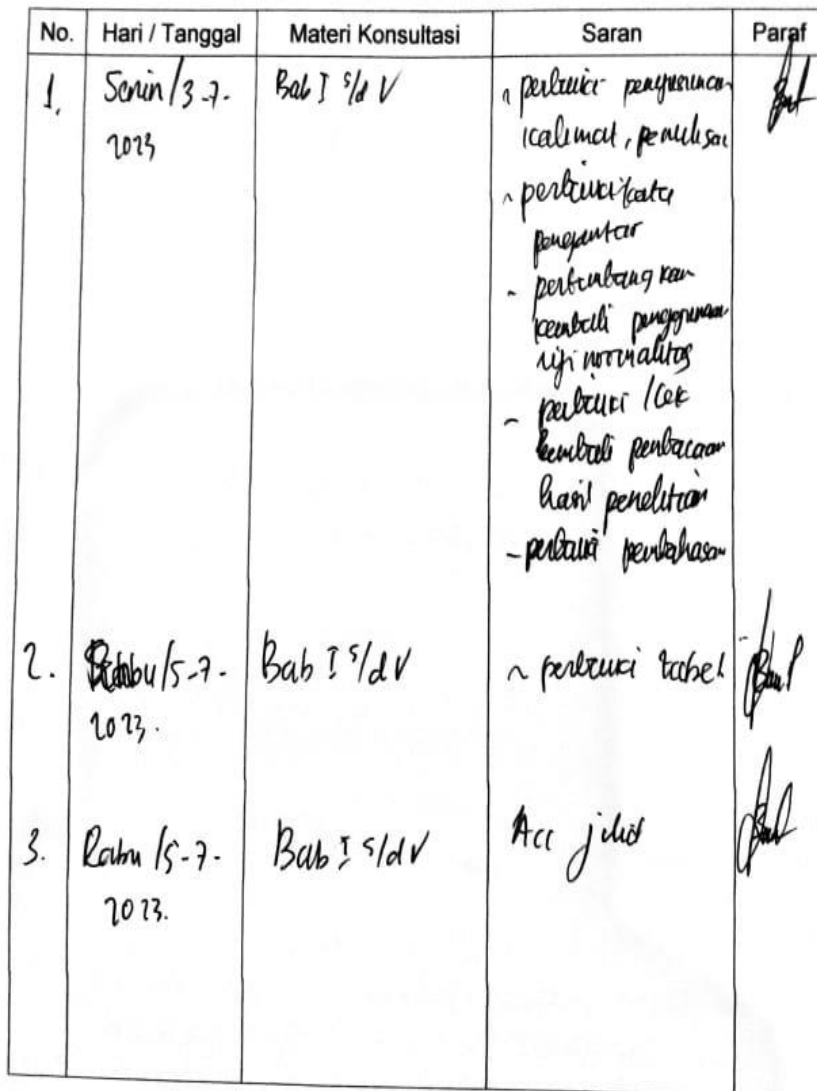 No. Hari / Tanggal Materi Konsultasi Saran Paraf
1. Senin/3-7- Bab I s/d V - perbaiki penyusunan
2023 kalimat, penulisan
- perbaiki kata
pengantar
- pertimbangkan
kembali penggunaan
uji normalitas
- perbaiki / cek
kembali pembacaan
hasil penelitian
- perbaiki pembahasan
2. Rabu/5-7- Bab I s/d V - perbaiki tabel
2023.
3. Rabu/5-7- Bab I s/d V Acc jilid
2023.